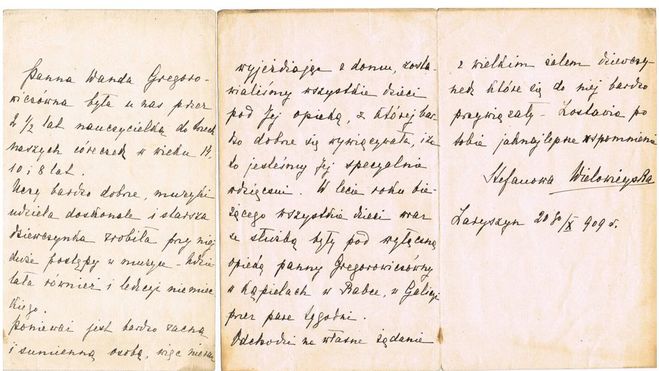 Panna Wanda Gregoro-
wiczówna była u nas przez
2 ½ lat nauczycielką do trzech
naszych córeczek w wieku 14,
10 i 8 lat.
Uczy bardzo dobrze, muzyki
udziela doskonale i starsza
dziewczynka zrobiła przy niej
duże postępy w muzyce - Udzie
lała również i lekcyi niemiec
kiego.
Ponieważ jest bardzo zacną
i sumienną osobą, więc nieraz
wyjeżdżając z domu, zosta-
wialiśmy wszystkie dzieci
pod Jej opieką, z której bar
dzo dobrze się wywiązywała, i za
to jesteśmy Jej specyalnie
wdzięczni. W lecie roku bie-
żącego wszystkie dzieci wraz
ze służbą były pod wyłączną
opieką panny Gregorowiczówny
w kąpielach w Rabce, w Galicyi
przez parę tygodni.
Odchodzi na własne żądanie
z wielkim żalem dziewczy
nek które się do niej bardzo
przywiązały - Zostawia po
sobie jaknajlepsze wspomnienia
Stefanowa Wielowieyska
20 /X 909 r.